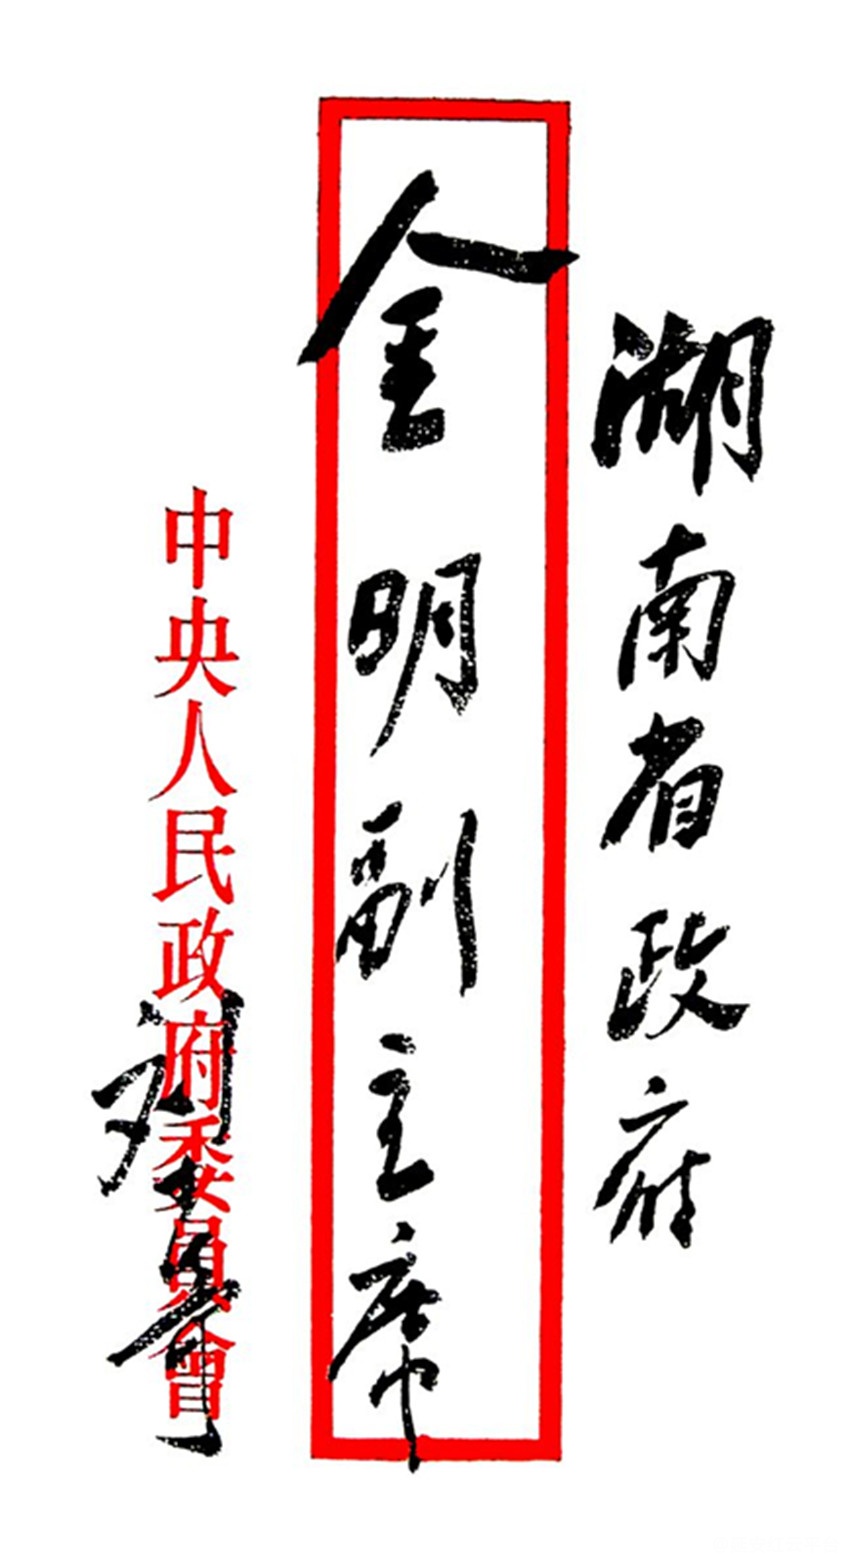 湖南省政府
金明副主席
中央人民政府委員會
刘少奇